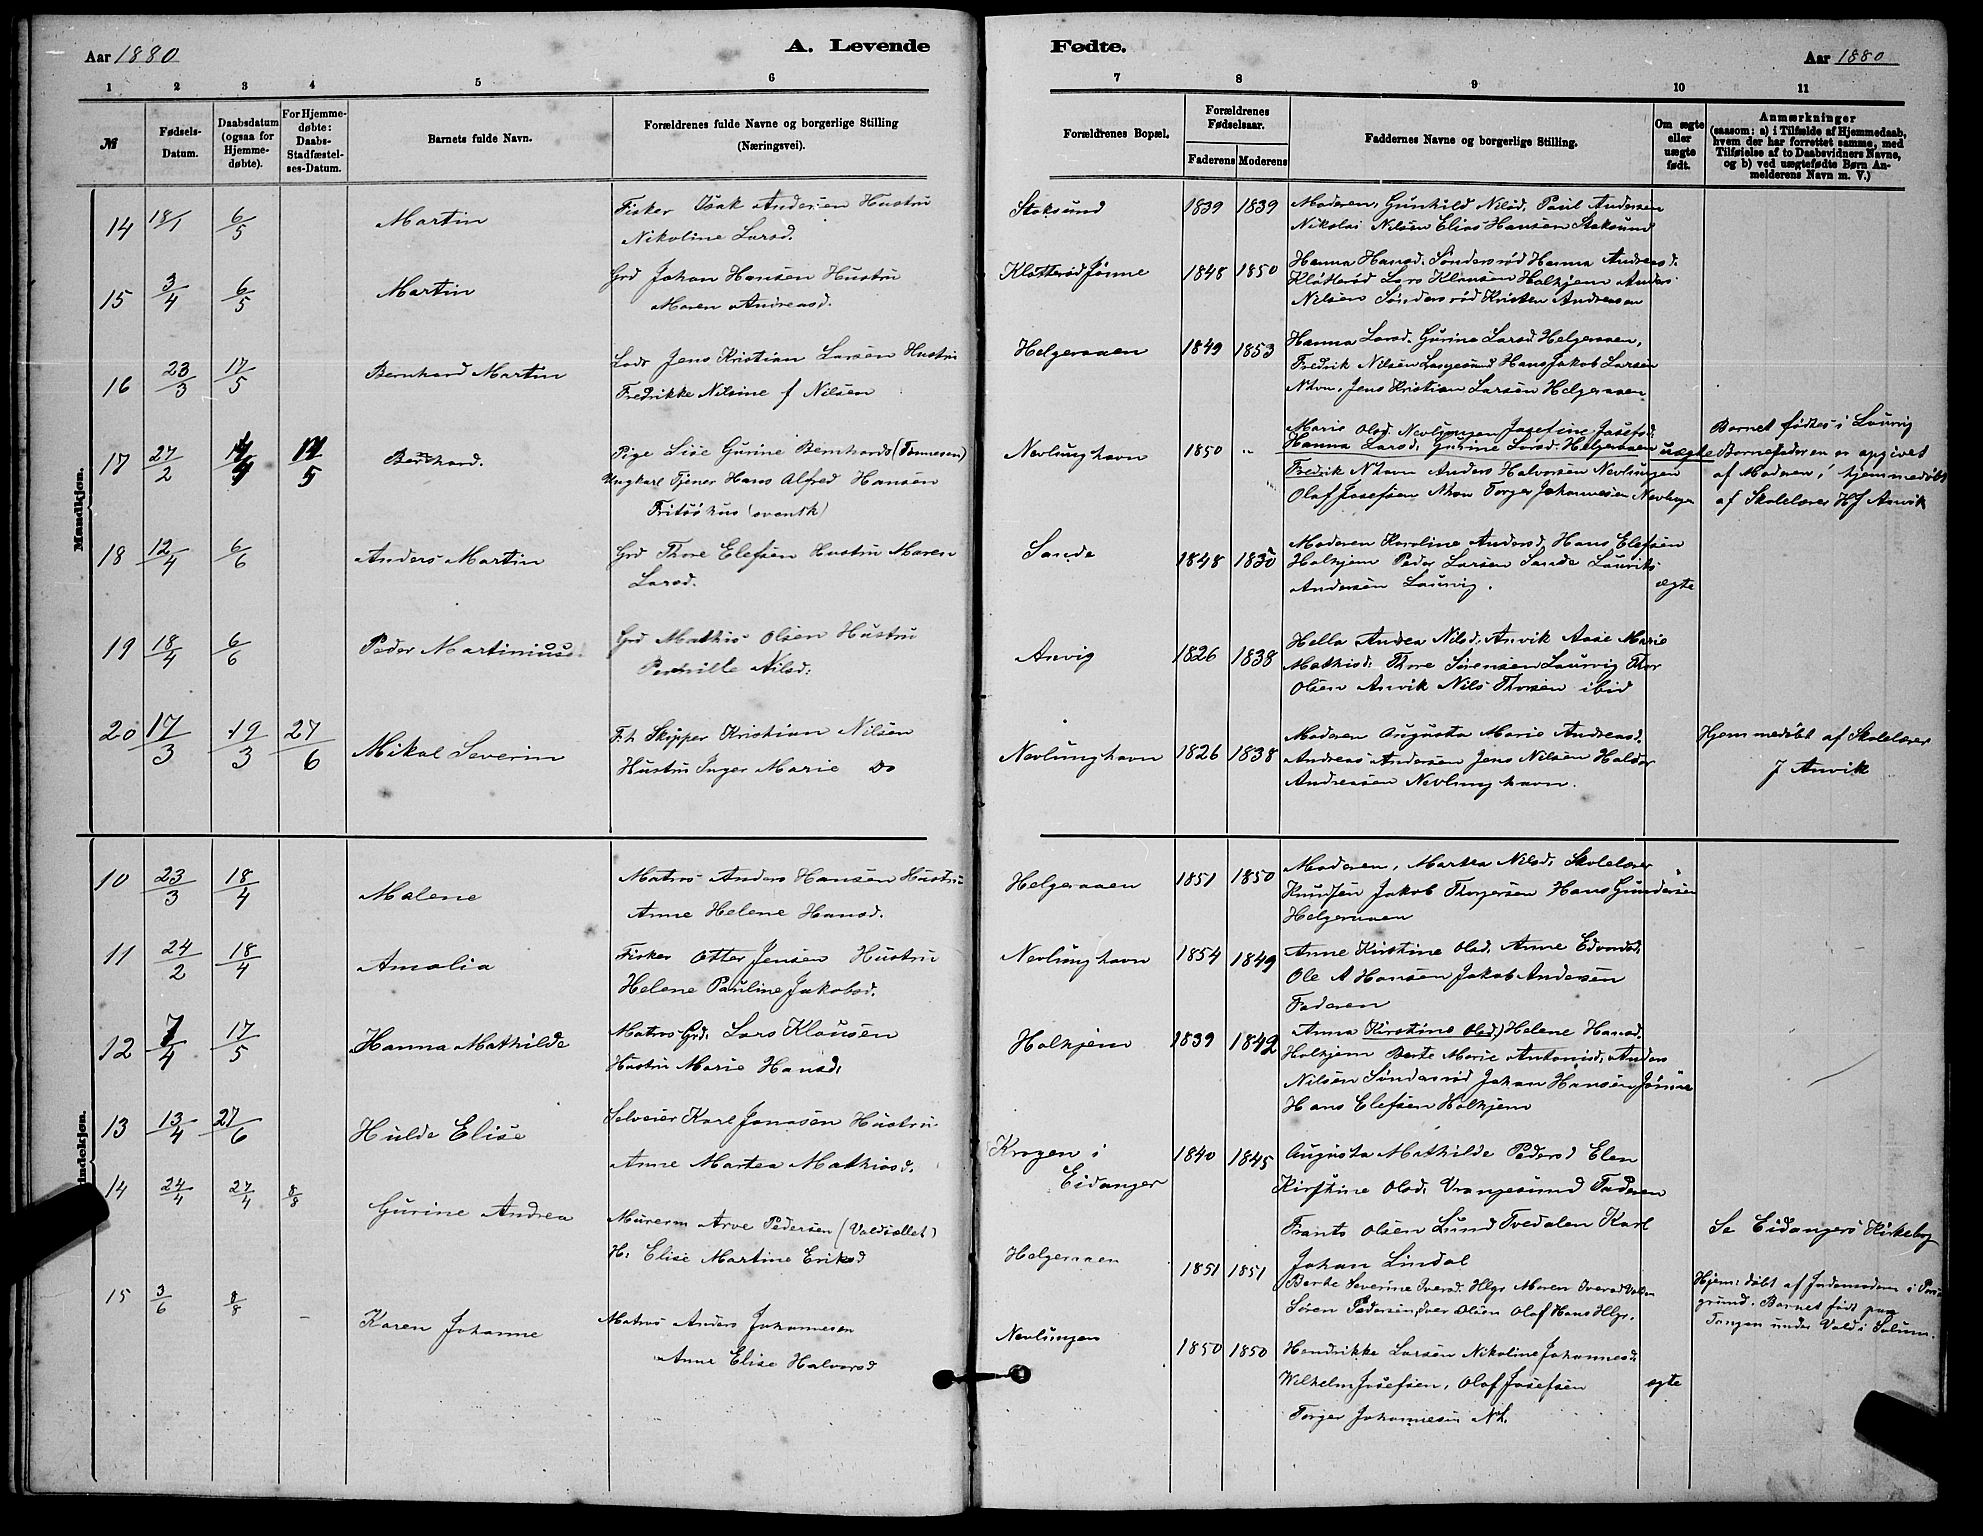 Aar 1880
A. Levende
Fødte.
Aar 1880
1 2 3 4 5 6 7 8 9 10 11
№
Fødsels-Datum.
Daabsdatum (ogsaa for Hjemmedøbte).
For Hjemmedøbte: Daabs-Stadfæstelses-Datum.
Barnets fulde Navn.
Forældrenes fulde Navne og borgerlige Stilling (Næringsvei).
Forældrenes Bopæl.
Forældrenes Fødselsaar.
Faderens Moderens
Faddernes Navne og borgerlige Stilling.
Om ægte eller uægte født.
Anmærkninger
(saasom: a) i Tilfælde af Hjemmedaab, hvem der har forrettet samme, med Tilføielse af to Daabsvidners Navne, og b) ved uægtefødte Børn Anmelderens Navn m. V.)
Mandkjøn.
14 18/1 6/5 Martin
Fisker Isak Andersen Hustru
Nikoline Larsd.
Stoksund 1839 1839
Moderen, Gunhild Nilsd, Paul Andersen
Nikolai Nilsen Elias Hansen Stoksund
15 3/4 6/5 Martin
Grd Johan Hansen Hustru
Maren Andreasd.
Kløtterød Jønne 1848 1850
Hanna Hansd. Søndersrød Hanna Andreasd.
Kløtterød Lars Klausen Holkjem Anders
Nilsen Søndersrød Kristen Andreasen
16 23/3 17/5 Bernhard Martin
Lods Jens Kristian Larsen Hustru
Fredrikke Nilsine f Nilsen
Helgeraaen 1849 1853
Hanna Larsd. Gurine Larsd Helgeraaen,
Fredrik Nilsen Langesund Hans Jakob Larsen
Nhvn, Jens Kristian Larsen Helgeraaen
17 27/2 5 Bernhard.
Pige Lise Gurine Bernhards (Tønnesen)
Ungkarl Tjener Hans Alfred Hansen
Fritsöhus (svensk)
Nevlunghavn 1850 "
Marie Olsd Nevlungen Josefine Josefsd.
Hanna Larsd, Gurine Larsd. Helgeraaen
Fredrik Nhavn Anders Halvorsen Nevlungen
Olaf Josefsen Nhvn Torger Johannesen Nevlungen
uægte
Barnet fødtes i Laurvig
Barnefaderen er opgivet
af Moderen, hjemmedøbt
af Skolelærer HJ Anvik
18 12/4 6/6 Anders Martin
Grd Thore Elefsen Hustru Maren
Larsd.
Sande 1848 1850
Moderen Karoline Andersd, Hans Elefsen
Holkjem Peder Larsen Sande Laurits
Andersen Laurvig.
ægte
19 18/4 6/6 Peder Martinius
Grd Mathis Olsen Hustru
Pernille Nilsd.
Anvig 1826 1838
Hella Andrea Nilsd. Anvik Aase Marie
Mathisd. Thore Sørensen Laurvig Thor
Olsen Anvik Nils Thorsen ibid
20 17/3 19/3 27/6 Mikal Severin
F.h. Skipper Kristian Nilsen
Hustru Inger Marie Do
Nevlunghavn 1826 1838
Moderen Augusta Marie Andreasd.
Andreas Andersen Jens Nilsen Haldor
Andreasen Nevlunghavn.
Hjemmedøbt af Skolelærer
J Anvik
indekjøn.
10 23/3 18/4 Malene
Matros Anders Hansen Hustru
Anne Helene Hansd.
Helgeraaen 1851 1850
Moderen, Martea Nilsd, Skolelærer
Knudsen Jakob Thorgersen Hans Gundersen
Helgeraaen
11 24/2 18/4 Amalia
Fisker Otter Jensen Hustru
Helene Pauline Jakobsd.
Nevlunghavn 1854 1849
Anne Kirstine Olsd, Anne Edvardsd.
Ole A Hansen Jakob Andersen
Faderen
12 7/4 17/5 Hanna Mathilde
Matros Grd. Lars Klausen
Hustru Marie Hansd.
Holkjem 1839 1842
Anna Kirstine Olsd, Helene Hansd.
Holkjem Berte Marie Antonisd, Anders
Nilsen Søndersrød Johan Hansen Jønne
Hans Elefsen Holkjem
13 13/4 27/6 Hulde Elise
Selveier Karl Jonasen Hustru
Anne Martea Mathiasd.
Krogen i
Eidanger
1840 1845
Augusta Mathilde Pedersd Elen
Kirstine Olsd. Vrangesund Faderen
Frants Olsen Lund Tvedalen Karl
Johan Lindal
Se Eidangers Kirkebog
14 24/4 27/4 8/8 Gurine Andrea
Murerm Arve Pedersen (Valdsællet)
H: Elise Martine Eriksd
Helgeraaen 1851 1851
Berthe Severine Iversd. Hlgr. Maren Iversd
Søren Pedersen, Iver Olsen Olaf Hans Hlgr.
Hjem: døbt af Jordemoderen i Pors-
grund. Barnet født paa
Tangen under Vold i Solum.
15 3/6 8/8 – Karen Johanne
Matros Anders Johannesen
Anne Elise Halvorsd
Nevlungen 1850 1850
Hendrikke Larsen Nikoline Johannesd.
Wilhelm Josefsen, Olaf Josefsen
Torger Johannesen Nh.
ægte